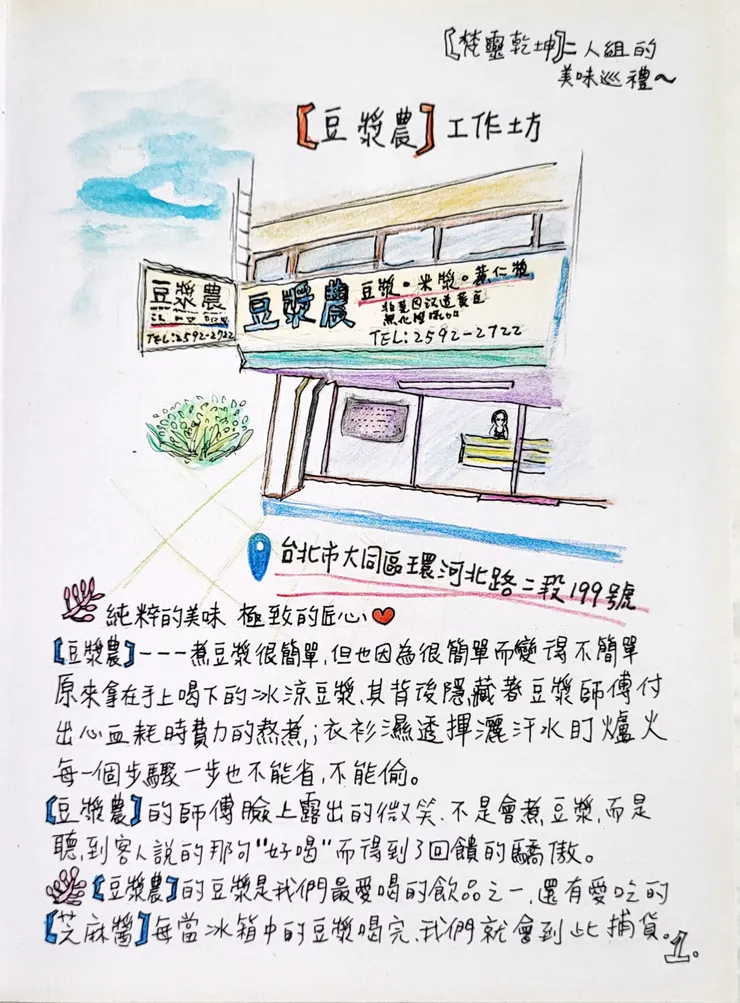 【梵靈乾坤】二人組的
美味巡禮~
【豆漿農】工作坊
豆漿農
TEL:2592-2722
豆漿農
豆漿。米漿。薏仁漿
非基因改造黃豆
TEL:2592-2722
台北市大同區環河北路二段199號
純粹的美味 極致的匠心❤
【豆漿農】----煮豆漿很簡單,但也因為很簡單而變得不簡單
原來拿在手上喝下的冰涼豆漿,其背後隱藏著豆漿師傅付
出心血耗時費力的熬煮,;衣衫濕透揮灑汗水盯爐火
每一個步驟一步也不能省,不能偷。
【豆漿農】的師傅臉上露出的微笑.不是會煮豆漿,而是
聽到客人說的那句"好喝"而得到了回饋的驕傲。
【豆漿農】的豆漿是我們最愛喝的飲品之一,還有愛吃的
【芝麻醬】每當冰箱中的豆漿喝完,我們就會到此捕貨。
1。